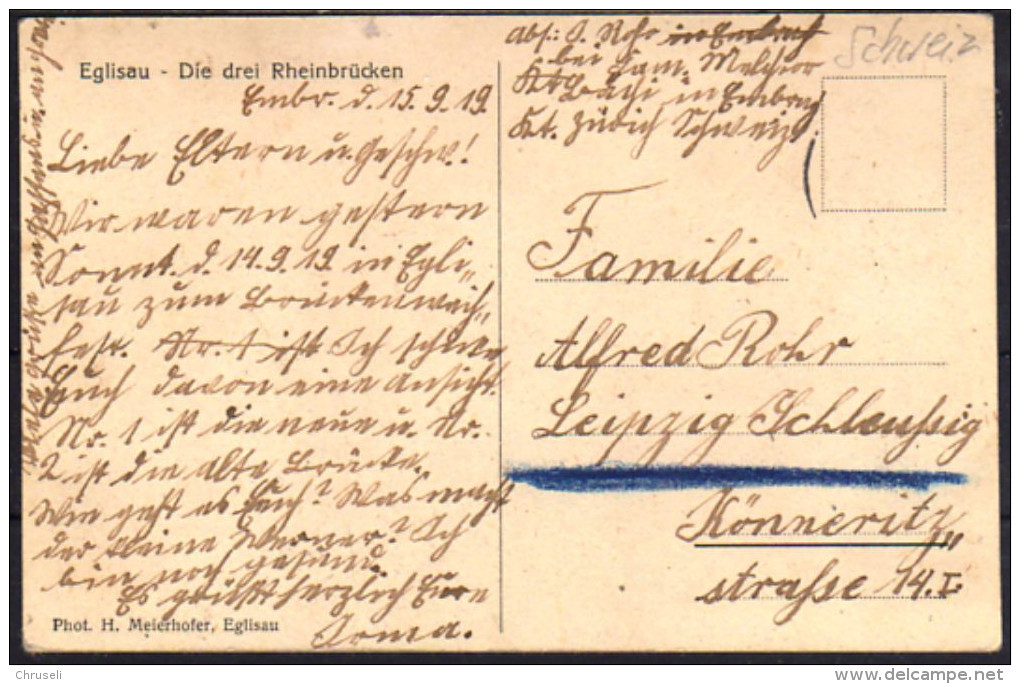 Eglisau - Die drei Rheinbrücken
Embr. d. 15.9.19.
Liebe Eltern u. Geschw.!
Wir waren gestern
Sonnt. d. 14.9.19. in Egli„
sau zum Brückenweih„
fest. Nr. 1 ist Ich schicke
Euch davon eine Ansicht.
Nr. 1 ist die neue u. Nr.
2 ist die alte Brücke.
Wie geht es Euch? Was macht
der kleine Werner? Ich
bin noch gesund.
Es grüßt herzlich Eure
Irma.
Phot. H. Meierhofer, Eglisau
Viele Grüße an
abs.: I. Rohr in Embrach
bei Fam. Melchior
Büchi in Embrach
Kt. Zürich Schweiz.
Schweiz
Familie
Alfred Rohr
Leipzig Schleußig
Könneritz„
strasse 14. I.
Chruseli
www.delcampe.net